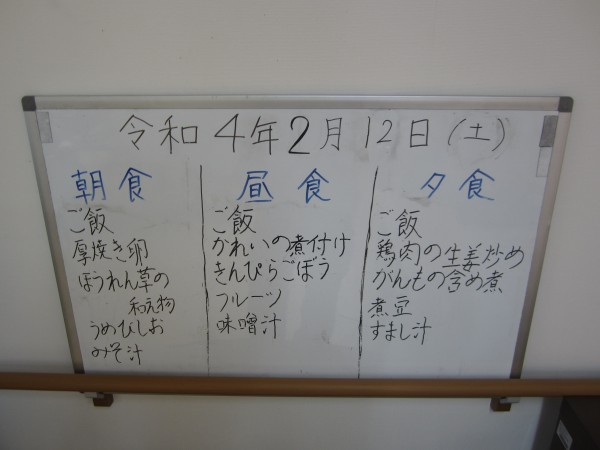 令和4年2月12日(土)
朝食
ご飯
厚焼き卵
ほうれん草の
和え物
うめびしお
みそ汁
昼食
ご飯
かれいの煮付け
きんぴらごぼう
フルーツ
味噌汁
夕食
ご飯
鶏肉の生姜炒め
がんもの含め煮
煮豆
すまし汁